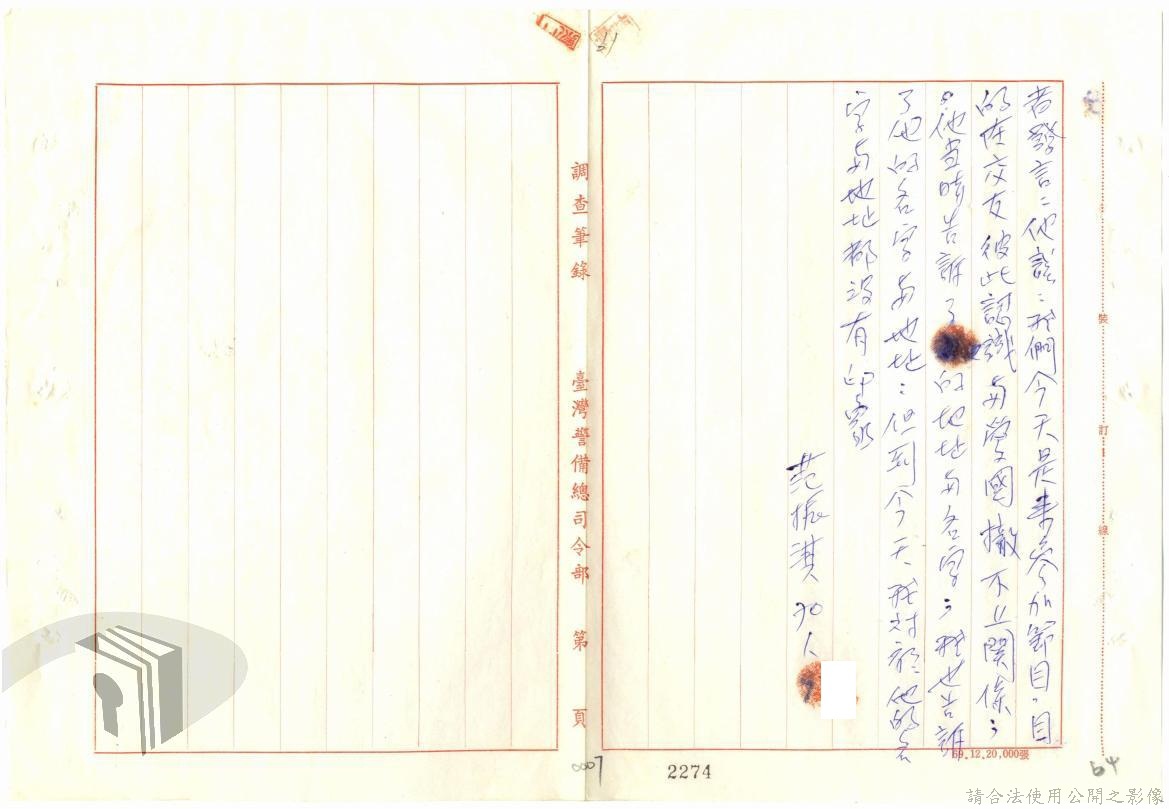 者發言：他說：我們今天是来參加節目，目
的在交友彼此認識与愛國撤不上關係；
他当時告訴了的地址与名字；我也告訴
了他的名字与地址：但到今天我对於他的名
字与地址都没有印象
范振淇
調查筆錄
臺灣警備總司令部
第 頁
裝
訂
線
69.12.20,000張
0007
2274
64
請合法使用公開之影像